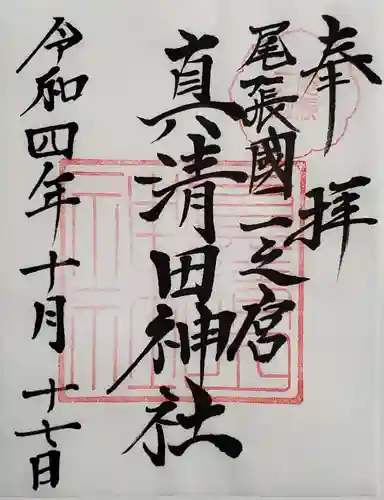 奉拝
尾張國一之宮
真清田神社
令和四年十月十七日